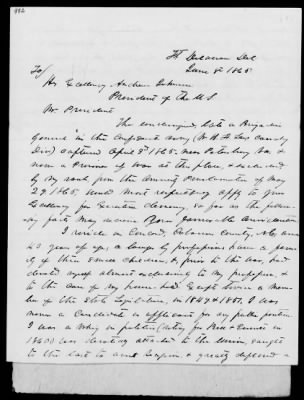 Ft Delaware Del
June 8th 1865
To/
His Excellency Andrew Johnson
President of The U.S.
Mr President
The undersigned, late a Brigadier
General in the Confederate Army (W. H. F. Lee's Cavalry
Div) captured April 3rd 1865, near Petersburg Va, &
now a Prisoner of War at this place, & excluded
by my rank from the Amnesty Proclamation of May
29. 1865, would most respectfully apply to your
Excellency for Executive clemency, & for as the following
facts may receive favorable consideration
I reside in Concord, Cabarrus County, N.C., am
40 years of age, a lawyer by profession, have a family
of three children, & prior to the war, had
devoted myself almost exclusively to my profession, &
to the care of my home, had Except twice a Member
of the State Legislature, in 1849 & 1857, I was
never a Candidate or applicant for any public position
I was a Whig in politics (voting for Bell & Everett in
1860) was devotedly attached to the Union, sought
to the last to avert & greatly